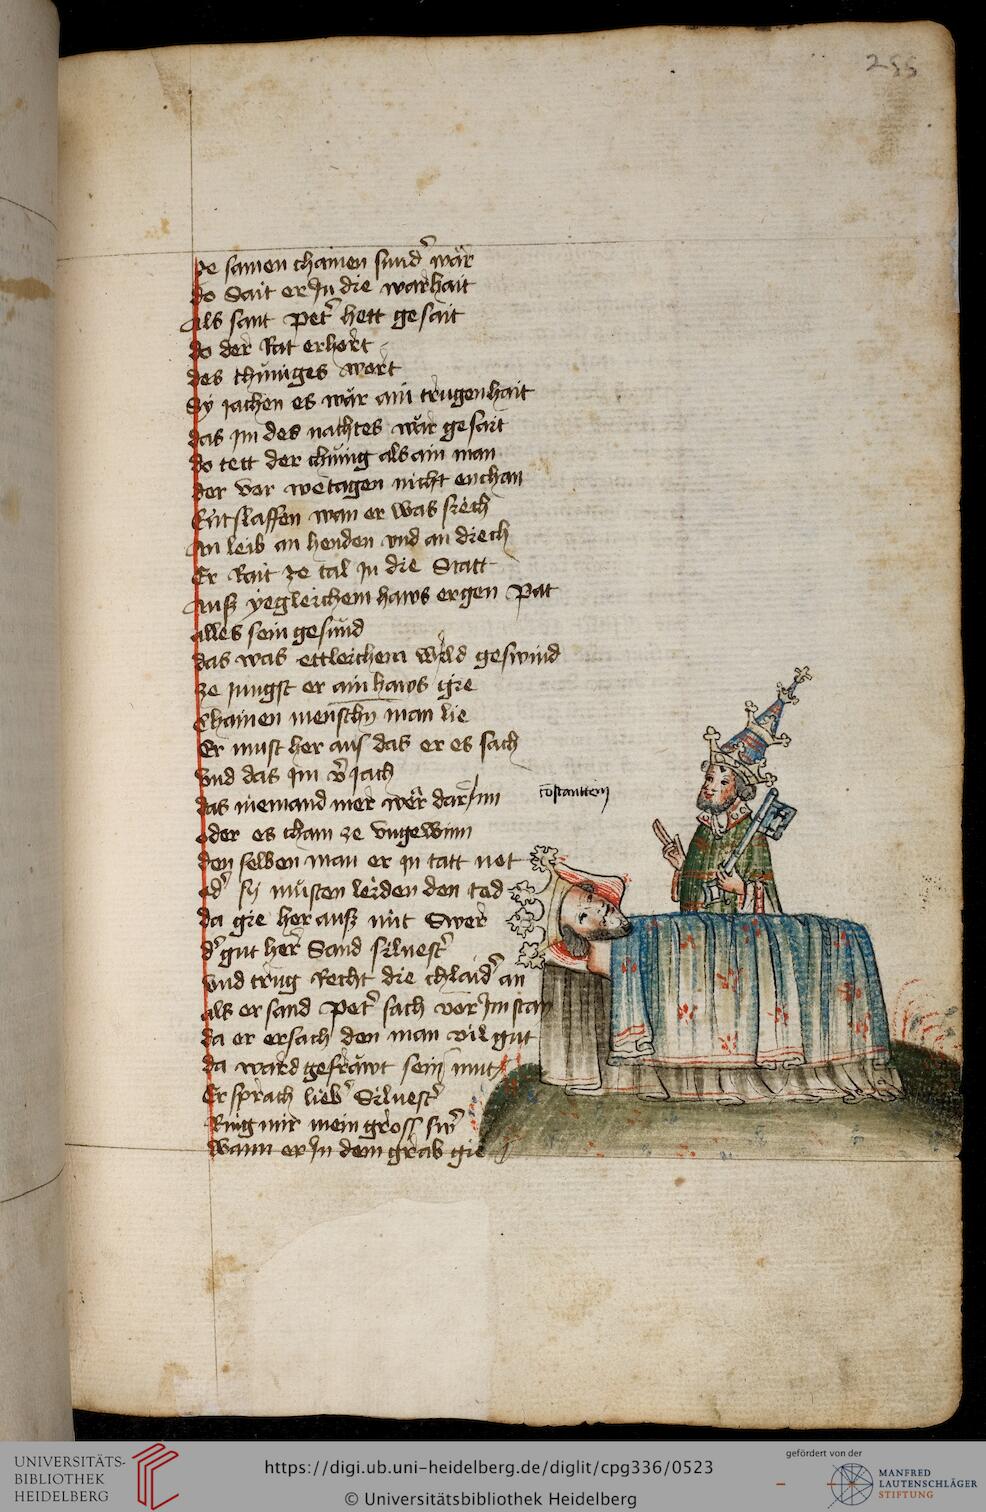 255
ze samen chainen sund' wär
do Sait er Jn die warhait
als sant pet' hett gesait
do der Rat erhort
des chüniges wort
Sy jachen es wär ain trugenhait
das Jm des nachtes wär gesait
do tett der chünig als ain man
der vor wetagen nicht enchan
Entslaffen wan er was siech
An leib an henden vnd an diech
Er Rait ze tal Jn die Statt
Auß yegleichem haws er gen pat
alles sein gesind
das was ettleichem geswind
ze jungst er ain haws gie
Chainen menschn man lie
Er must her aus das er es sach
vnd das Jm v'jach
das niemand mer wer dar Jnn
oder es cham ze vngewinn
den selben man er Jn tatt not
od' sy müsten leiden den tod
da gie her auß mit Swer
d' gut her Sand silvest'
vnd trug Recht die chlaid' an
als er sand pet' sach vor Jm stan
da er ersach den man vil gut
da ward gefräwt sein mut
Er sprach lieb' Silvest'
Ring mir mein gross sw'
wann er Jn dem grab gie
costantteinj
UNIVERSITÄTS-
BIBLIOTHEK
HEIDELBERG
https://digi.ub.uni-heidelberg.de/diglit/cpg336/0523
© Universitätsbibliothek Heidelberg
gefördert von der
MANFRED
LAUTENSCHLÄGER
STIFTUNG